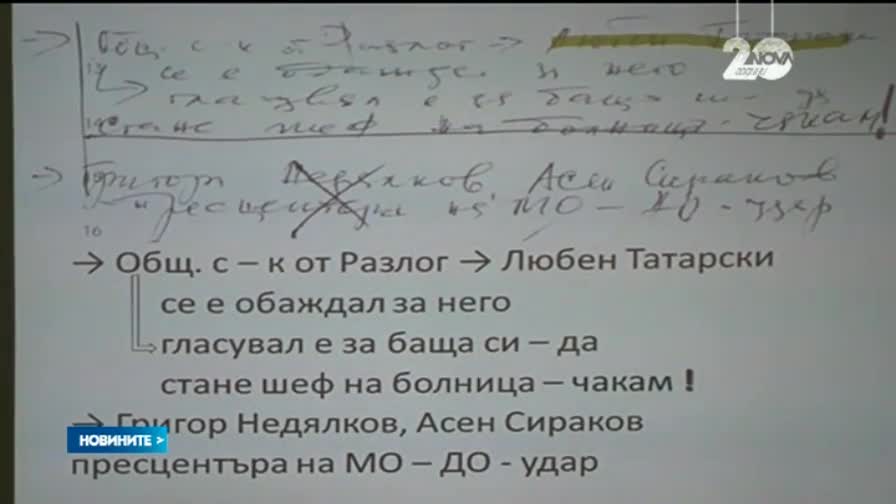 20 NOVA
години
→ Общ. с-к от Разлог → Любен Татарски
се е обаждал за него
гласувал е за баща си – да
стане шеф на болница – чакам!
→ Григор Недялков, Асен Сираков
пресцентъра на МО – ДО - удар
16
→ Общ. с – к от Разлог → Любен Татарски
се е обаждал за него
гласувал е за баща си – да
стане шеф на болница – чакам !
→ Григор Недялков, Асен Сираков
пресцентъра на МО – ДО - удар
НОВИНИТЕ >